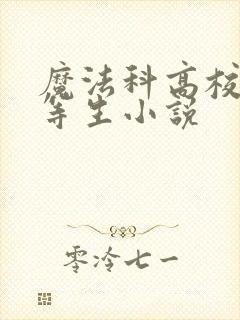 魔法科高校
等生小说
零泠七一